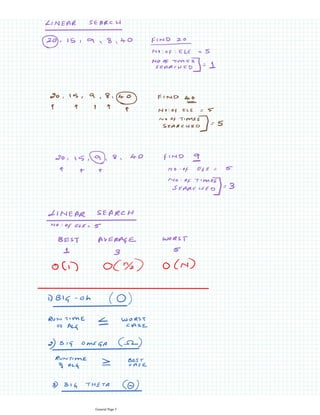 LINEAR SEARCH
20, 15, 9, 8, 40 FIND 20
NO: OF: ELE = 5
NO OF TIMES
SEARCHED ] = 1
20, 15, 9, 8, 40 FIND 40
↑ ↑ ↑ ↑ ↑ NO: OF ELE = 5
NO OF TIMES
SEARCHED ] = 5
20, 15, 9, 8, 40 FIND 9
↑ ↑ ↑ NO: OF ELE = 5
NO: OF TIMES
SEARCHED ] = 3
LINEAR SEARCH
NO: OF ELE: 5
BEST AVERAGE WORST
1 3 5
O(1) O(N/2) O(N)
1) BIG-OH (O)
RUN TIME ≤ WORST
OF ALG CASE
2) BIG OMEGA (Ω)
RUNTIME ≥ BEST
OF ALG CASE
3) BIG THETA (Θ)
General Page 7